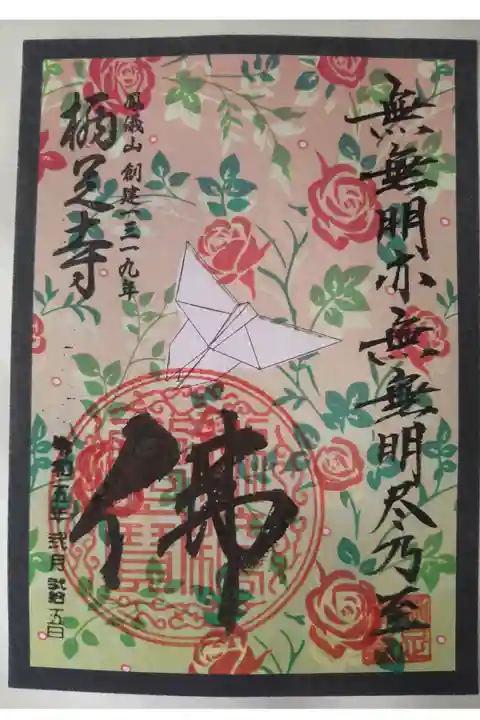 無無明亦無無明尽乃至
佛
鳳儀山 創建一三一九年
寺
令和五年 弐月 弐拾五日